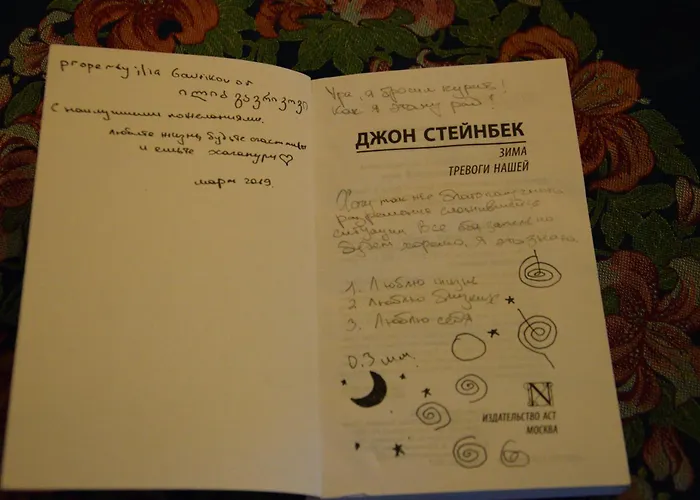 property ilia Gavrikov of
ილია გავრიკოვი
С наилучшими пожеланиями.
Любите жизнь, будьте счастливы
и ешьте хачапури
март 2019.
Ура, я бросил курить!
Как я этому рад!
ДЖОН СТЕЙНБЕК
ЗИМА
ТРЕВОГИ НАШЕЙ
Хочу так же
ситуации. Все обязательно
будет хорошо, я это знаю
1. Люблю жизнь
2 Люблю близких
3. Люблю себя
0.3 мм.
N
ИЗДАТЕЛЬСТВО АСТ
МОСКВА